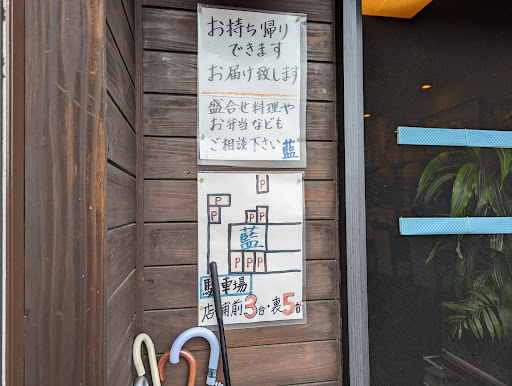 お持ち帰り
できます
お届け致します
盛合せ料理や
お弁当なども
ご相談下さい 藍
P
P
P P
藍
P P P
駐車場
店舗前3台・裏5台